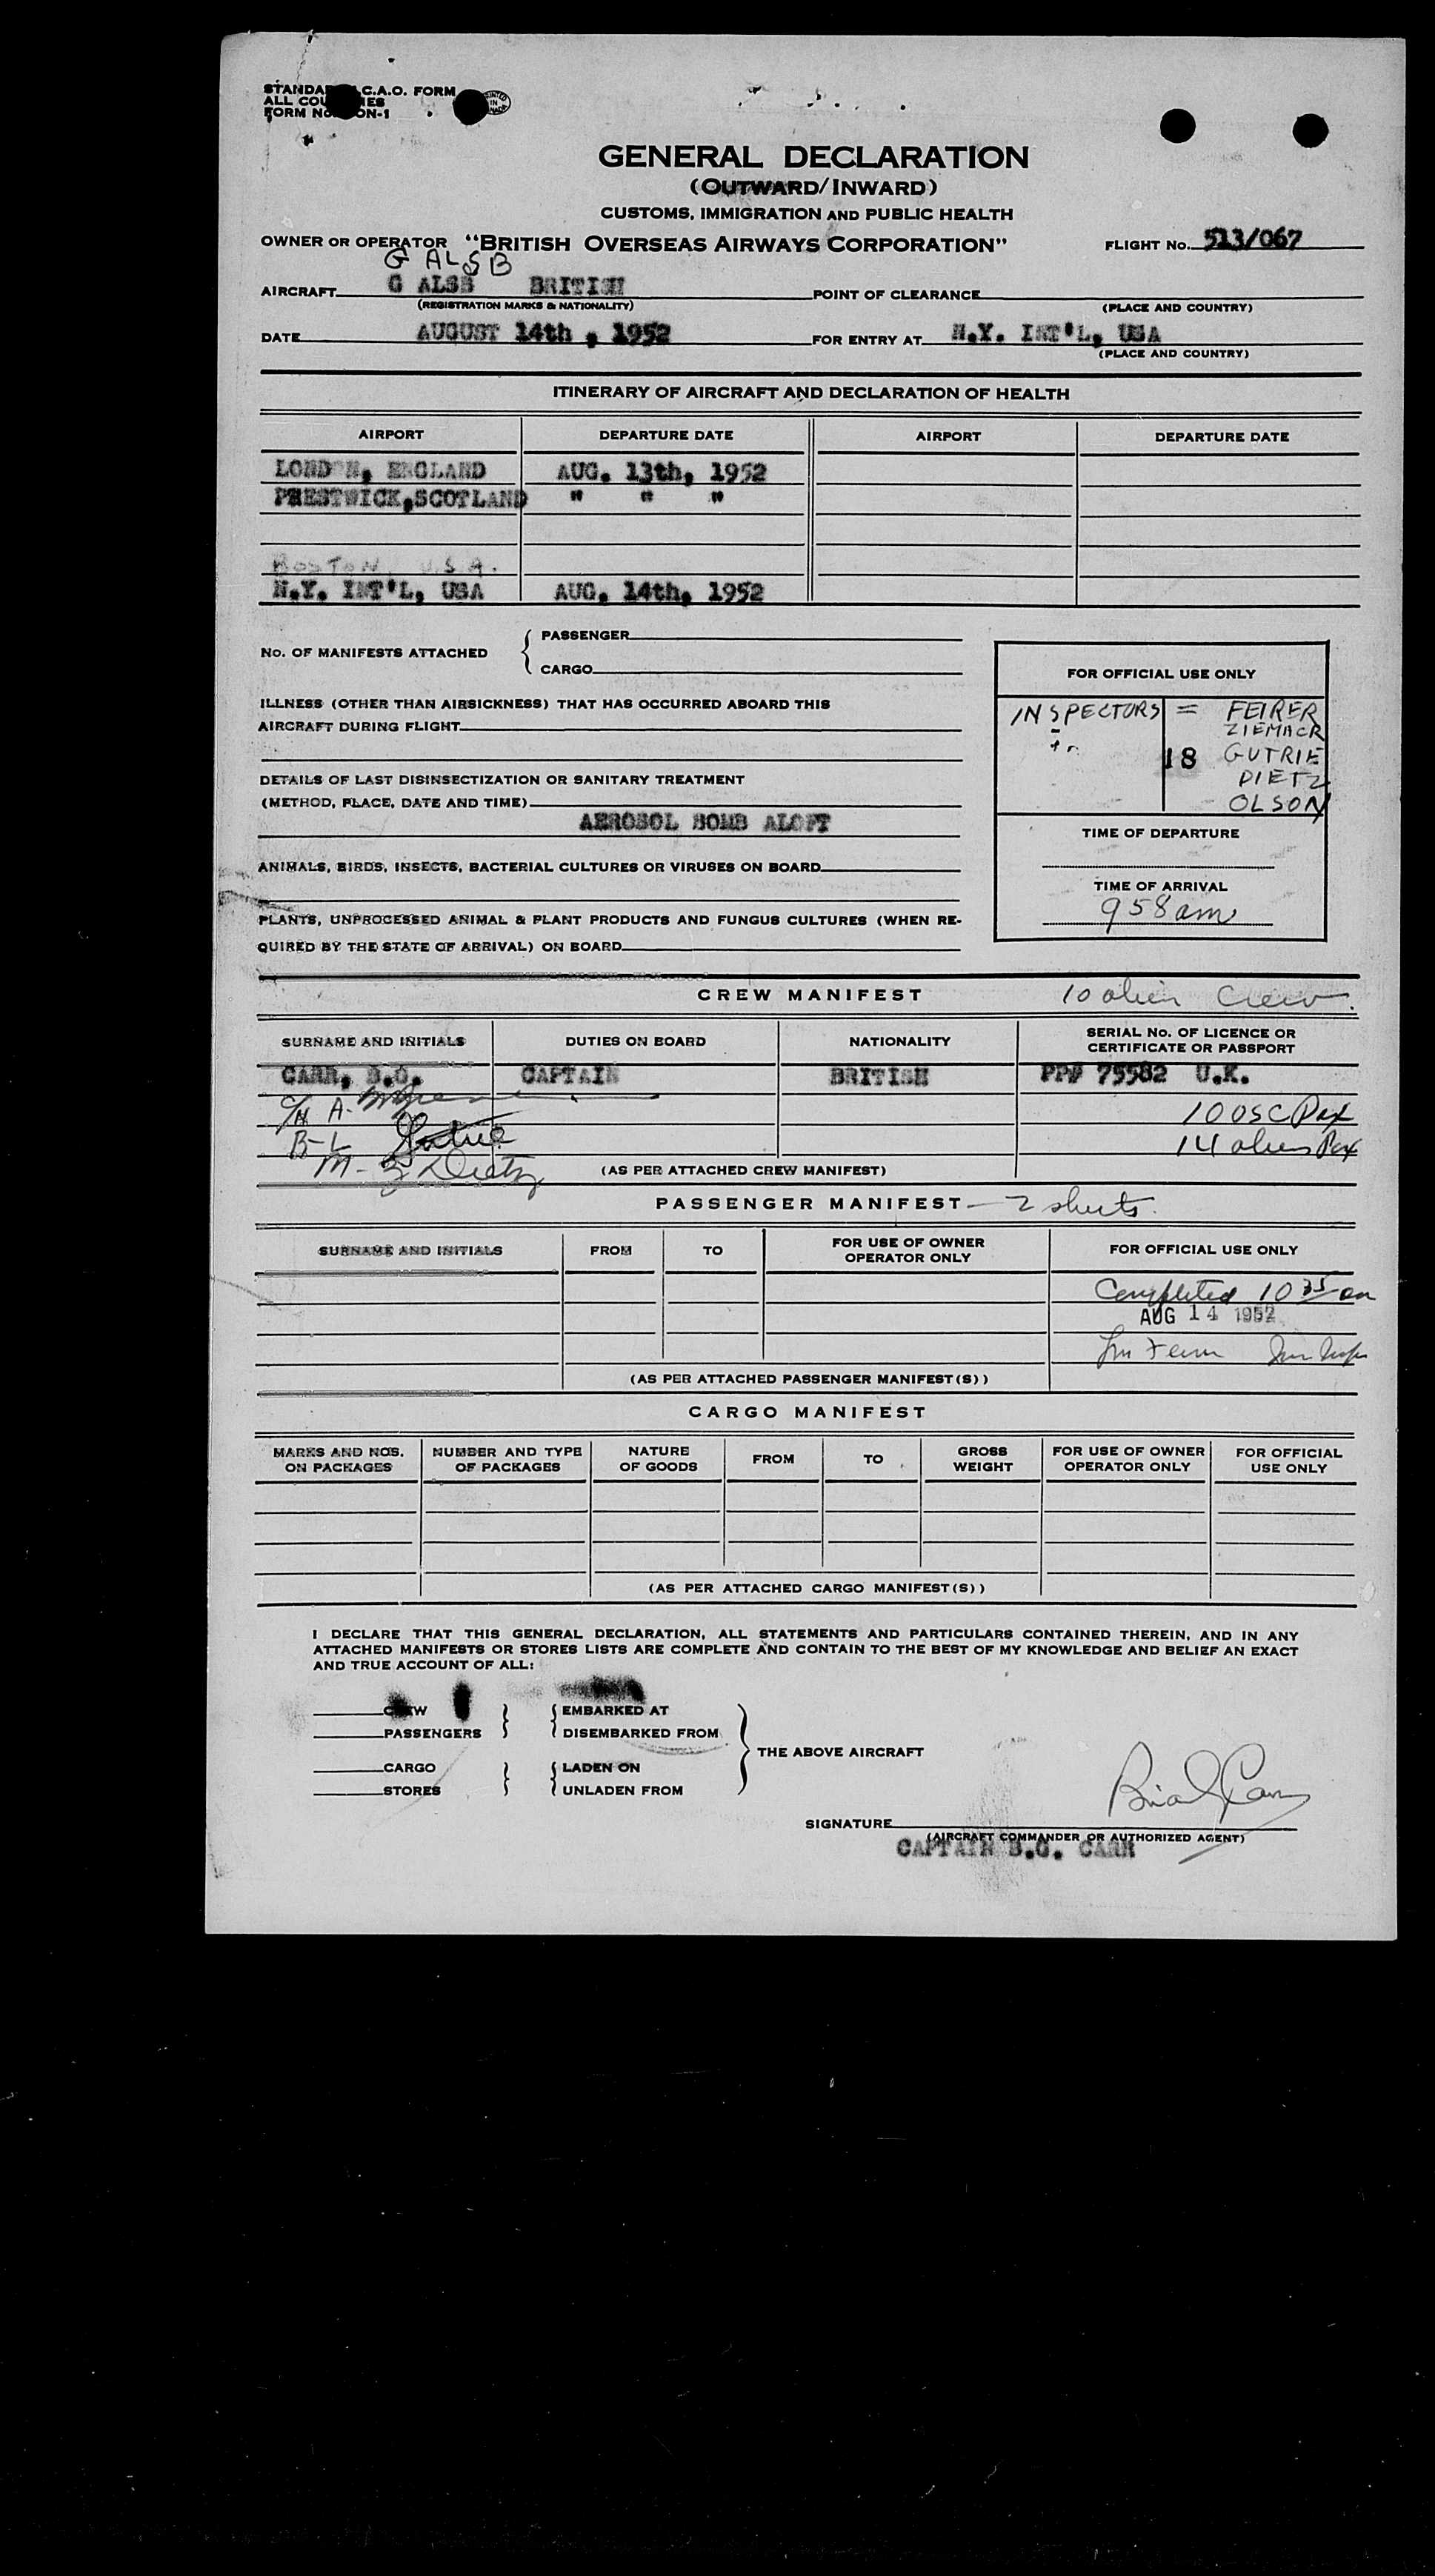 STANDARD I.C.A.O. FORM
ALL COUNTRIES
FORM No. CON-1
PRINTED IN CANADA
GENERAL DECLARATION
(OUTWARD/INWARD)
CUSTOMS, IMMIGRATION AND PUBLIC HEALTH
OWNER OR OPERATOR "BRITISH OVERSEAS AIRWAYS CORPORATION" FLIGHT No. 513/067
G ALSB
AIRCRAFT G ALSB BRITISH POINT OF CLEARANCE
(REGISTRATION MARKS & NATIONALITY) (PLACE AND COUNTRY)
DATE AUGUST 14th , 1952 FOR ENTRY AT N.Y. INT'L, USA
(PLACE AND COUNTRY)
ITINERARY OF AIRCRAFT AND DECLARATION OF HEALTH
AIRPORT DEPARTURE DATE AIRPORT DEPARTURE DATE
LONDON, ENGLAND AUG. 13th, 1952
PRESTWICK,SCOTLAND " " "
BOSTON, U.S.A.
N.Y. INT'L, USA AUG. 14th, 1952
No. OF MANIFESTS ATTACHED { PASSENGER
CARGO
ILLNESS (OTHER THAN AIRSICKNESS) THAT HAS OCCURRED ABOARD THIS
AIRCRAFT DURING FLIGHT
DETAILS OF LAST DISINSECTIZATION OR SANITARY TREATMENT
(METHOD, PLACE, DATE AND TIME)
AEROSOL BOMB ALOFT
ANIMALS, BIRDS, INSECTS, BACTERIAL CULTURES OR VIRUSES ON BOARD
PLANTS, UNPROCESSED ANIMAL & PLANT PRODUCTS AND FUNGUS CULTURES (WHEN RE-
QUIRED BY THE STATE OF ARRIVAL) ON BOARD
FOR OFFICIAL USE ONLY
INSPECTORS = FEIRER
ZIEMACR
18 GUTRIE
DIETZ
OLSON
TIME OF DEPARTURE
TIME OF ARRIVAL
958am
CREW MANIFEST 10 alien Crew.
SURNAME AND INITIALS DUTIES ON BOARD NATIONALITY SERIAL No. OF LICENCE OR
CERTIFICATE OR PASSPORT
CARR, B.G. CAPTAIN BRITISH PP# 75582 U.K.
C/H A-
10 USC Pax
B-L Gutrie
14 aliens Pax
M- Dietz
(AS PER ATTACHED CREW MANIFEST)
PASSENGER MANIFEST — 2 sheets.
SURNAME AND INITIALS FROM TO FOR USE OF OWNER
OPERATOR ONLY FOR OFFICIAL USE ONLY
Completed 10 35 am
AUG 14 1952
(AS PER ATTACHED PASSENGER MANIFEST(S))
CARGO MANIFEST
MARKS AND NOS.
ON PACKAGES NUMBER AND TYPE
OF PACKAGES NATURE
OF GOODS FROM TO GROSS
WEIGHT FOR USE OF OWNER
OPERATOR ONLY FOR OFFICIAL
USE ONLY
(AS PER ATTACHED CARGO MANIFEST(S))
I DECLARE THAT THIS GENERAL DECLARATION, ALL STATEMENTS AND PARTICULARS CONTAINED THEREIN, AND IN ANY
ATTACHED MANIFESTS OR STORES LISTS ARE COMPLETE AND CONTAIN TO THE BEST OF MY KNOWLEDGE AND BELIEF AN EXACT
AND TRUE ACCOUNT OF ALL:
CREW } { EMBARKED AT
PASSENGERS } { DISEMBARKED FROM
THE ABOVE AIRCRAFT
CARGO } { LADEN ON
STORES } { UNLADEN FROM
SIGNATURE
(AIRCRAFT COMMANDER OR AUTHORIZED AGENT)
CAPTAIN B.G. CARR